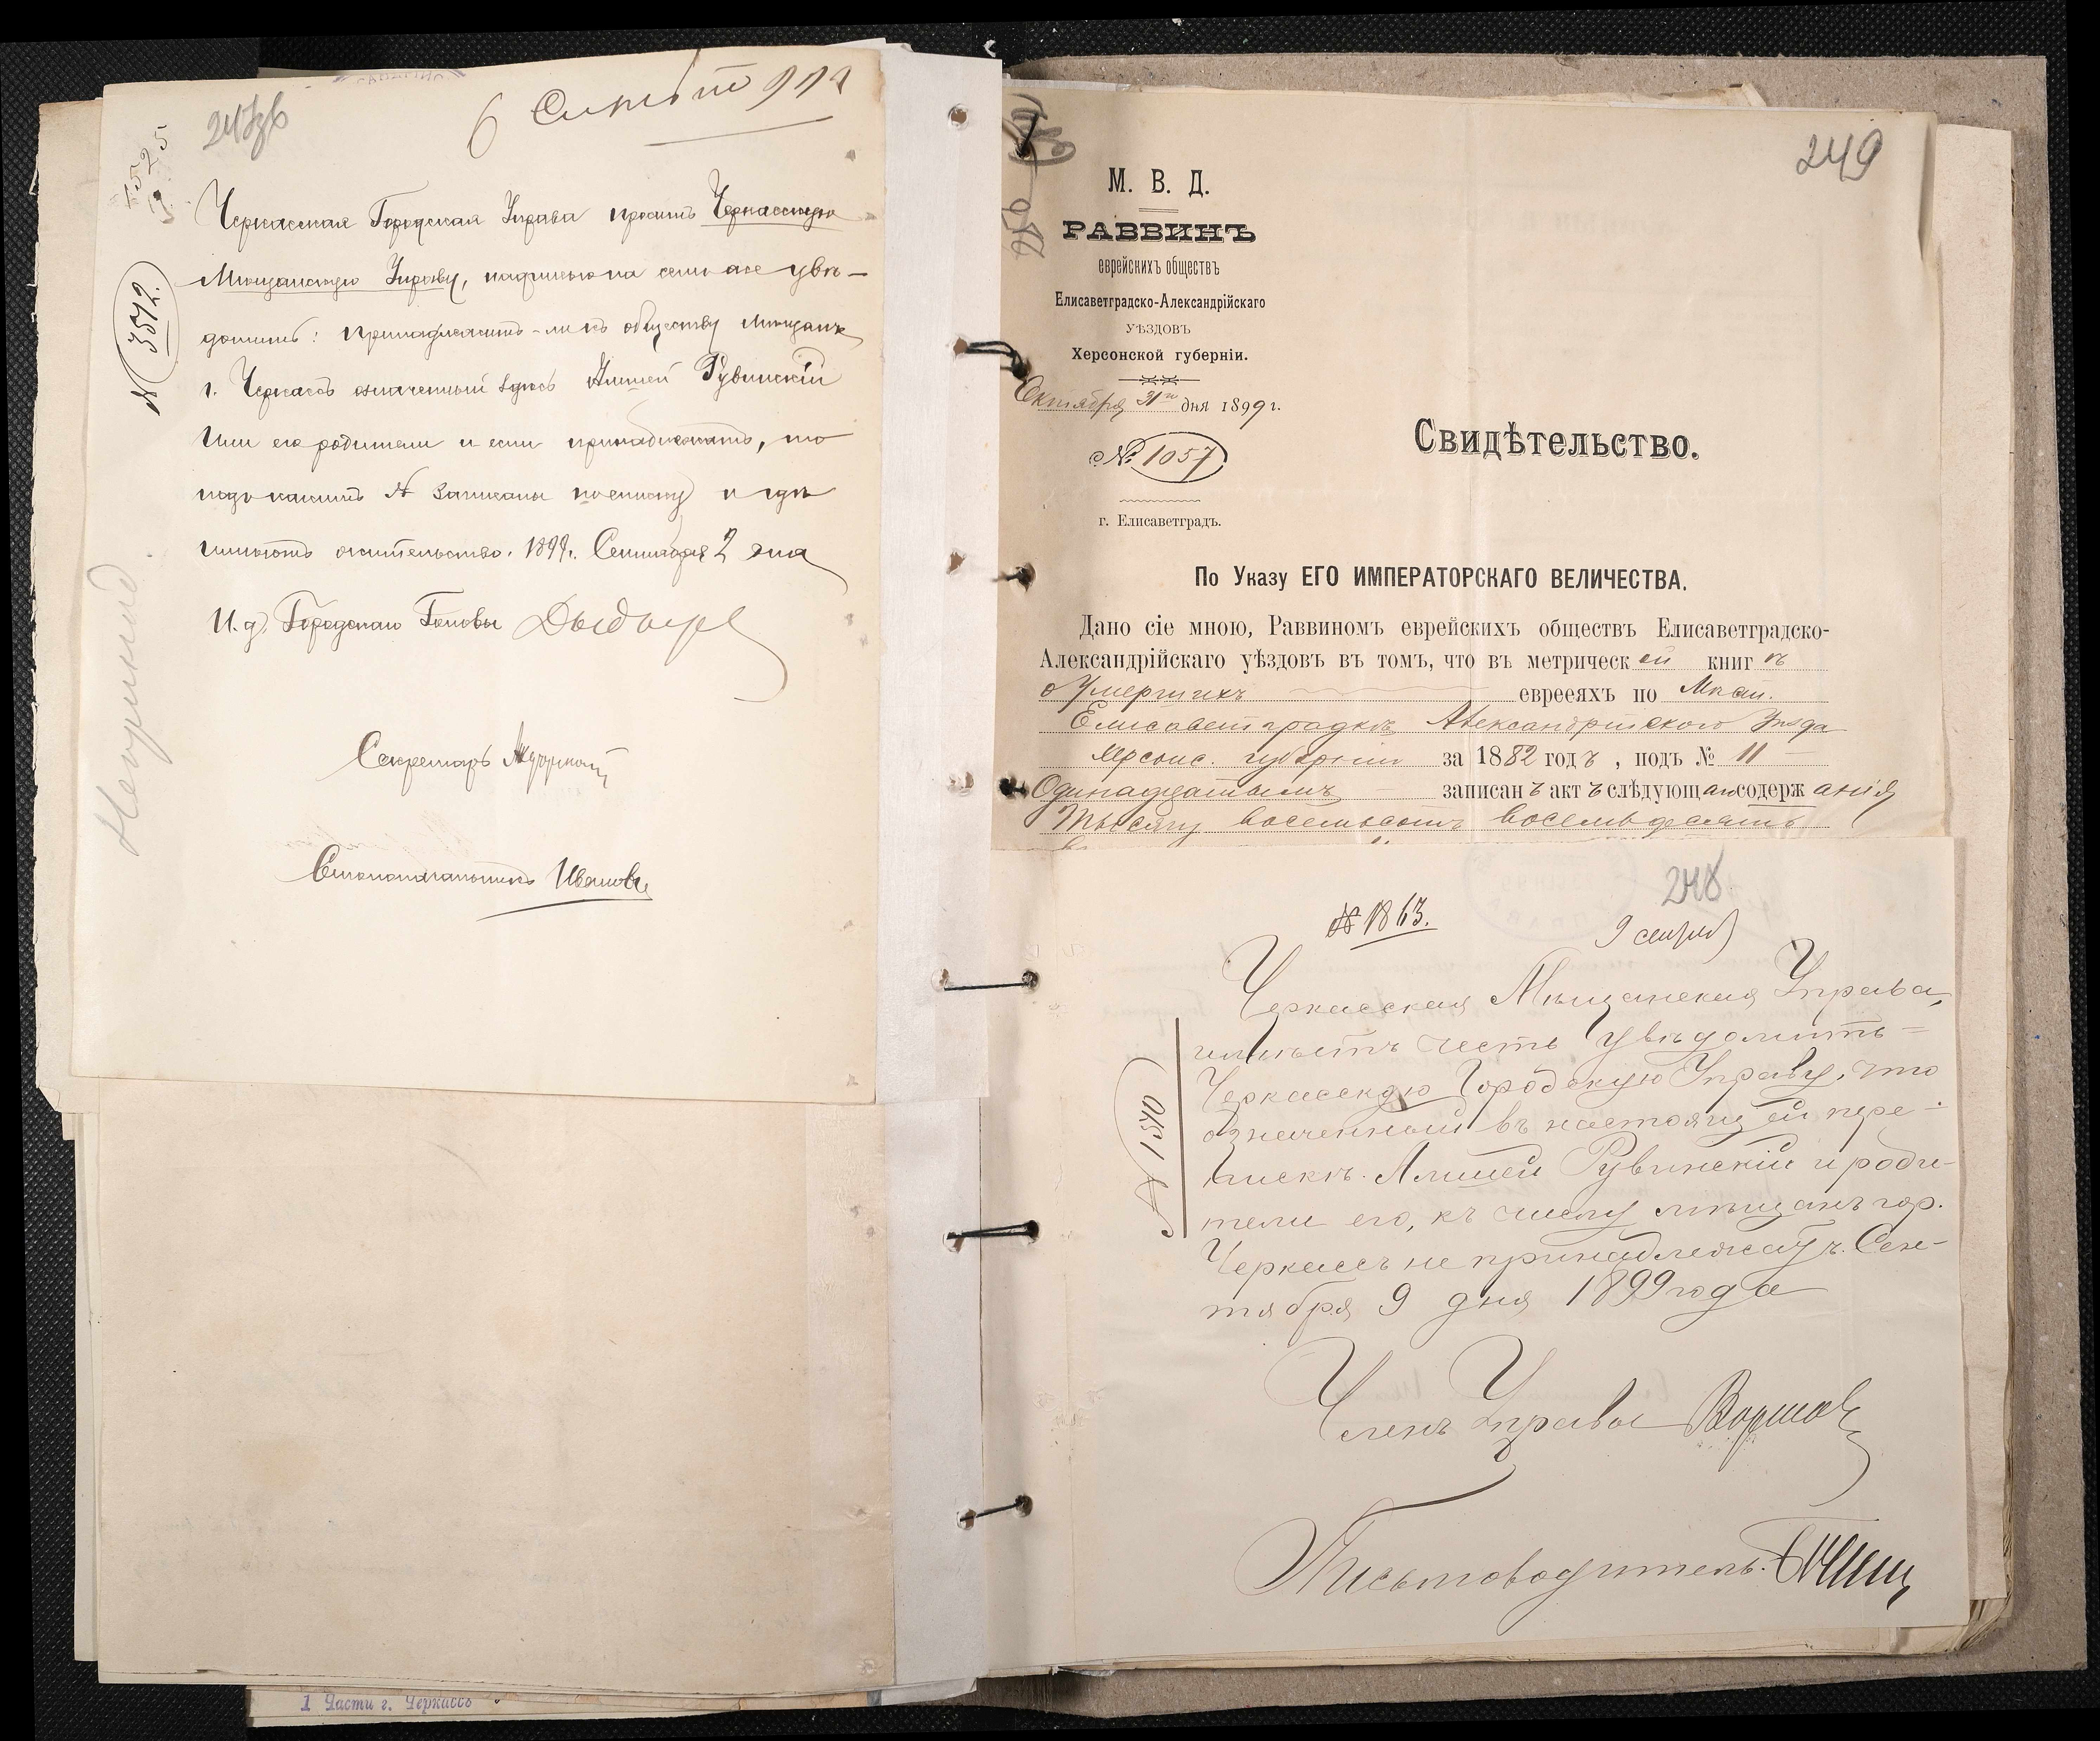 247об
6 Сентяб 99
7525
Черкасская Городская Управа проситъ Черкасскую
Мѣщанскую Управу, надписью на семъ же увѣ-
домить: принадлежитъ-ли къ обществу мѣщанъ
г. Черкассъ означенный здѣсь Алтей Рувинскій
или его родители и если принадлежатъ, то
подъ какимъ № записаны по списку и гдѣ
имѣютъ жительство. 1899г. Сентября 2 дня
№ 3572.
И. д. Городскаго Головы
Секретарь
Столоначальникъ Ивановъ
1 Части г. Черкассъ
249
250
М. В. Д.
РАВВИНЪ
еврейскихъ обществъ
Елисаветградско-Александрійскаго
УѢЗДОВЪ
Херсонской губерніи.
Октября 31го дня 1899 г.
№ 1057
г. Елисаветградъ.
Свидѣтельство.
По Указу ЕГО ИМПЕРАТОРСКАГО ВЕЛИЧЕСТВА.
Дано сіе мною, Раввиномъ еврейскихъ обществъ Елисаветградско-
Александрійскаго уѣздовъ въ томъ, что въ метрической книгѣ
о Умершихъ евреяхъ по
Елисаветградкѣ Александрійскаго Уѣзда
Херсонс. губерніи за 1882 годъ, подъ № 11
Одинадцатымъ записанъ актъ слѣдующаго содержанія
Тысячу восемьсотъ восемьдесятъ
248
№ 1863.
9 сентяб
Черкасская Мѣщанская Управа,
имѣетъ честь увѣдомить
Черкасскую Городскую Управу, что
означенный въ настоящей пере-
пискѣ Алтей Рувинскій и роди-
тели его, къ числу мѣщанъ гор.
Черкассъ не принадлежатъ. Сен-
тября 9 дня 1899 года
№ 1540
Членъ Управы
Письмоводитель